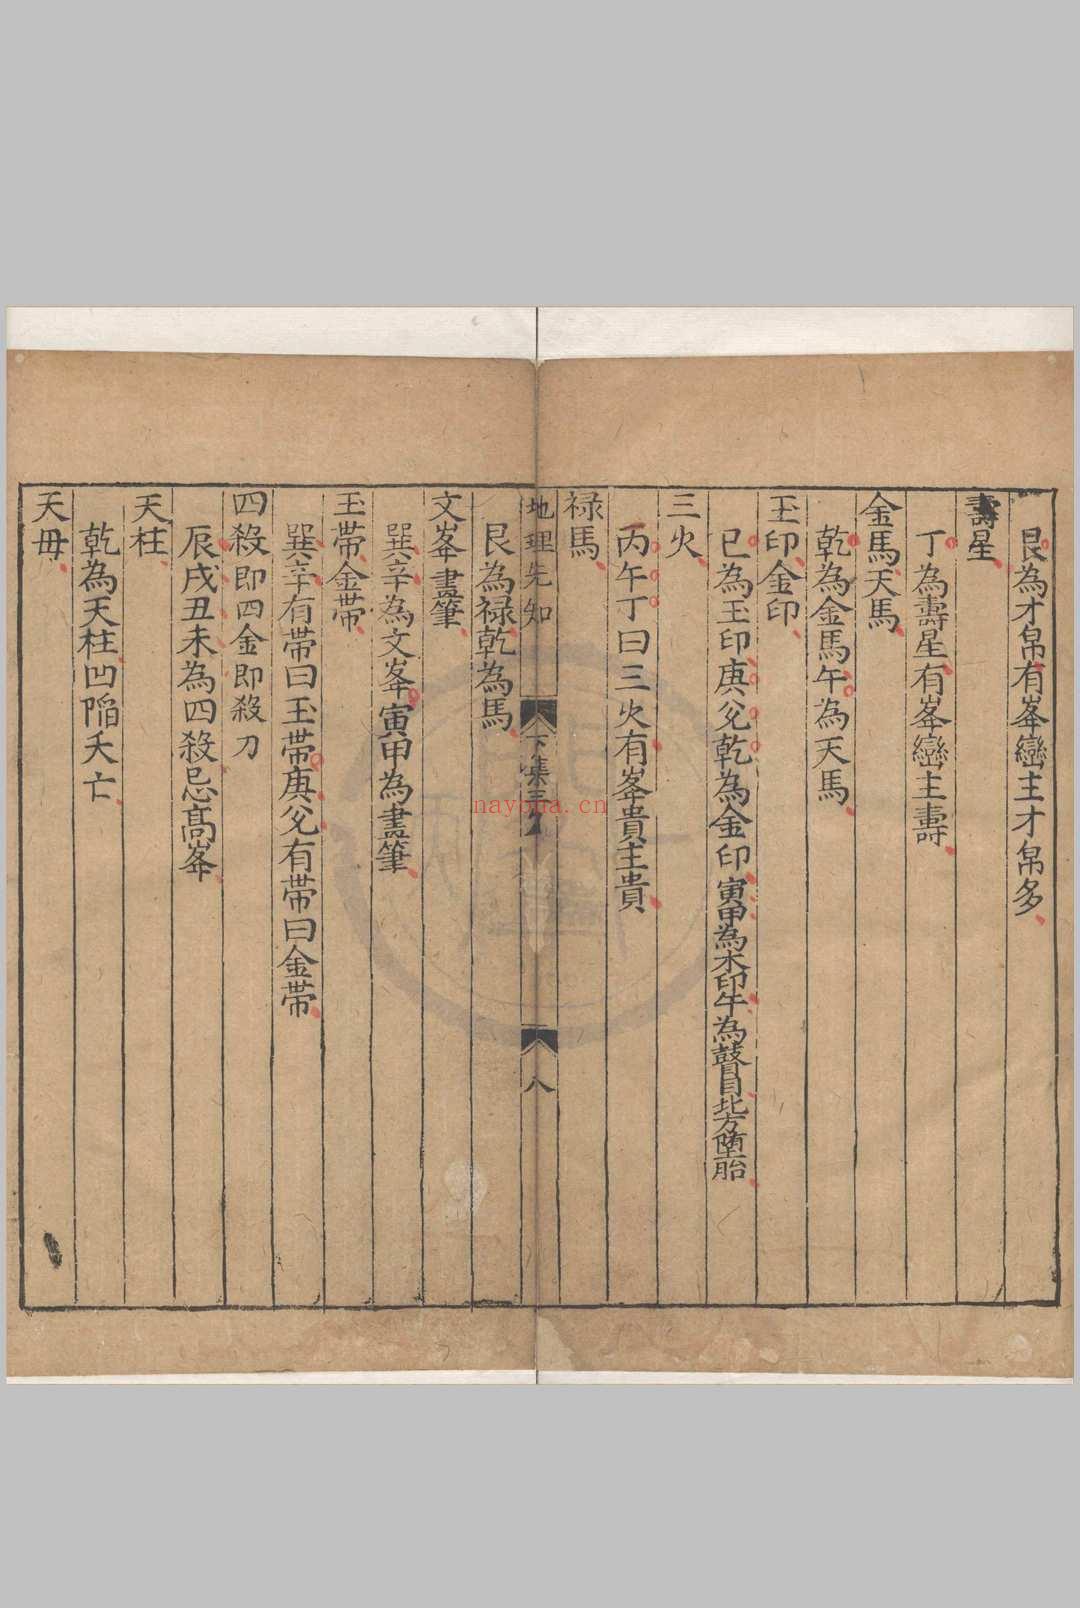 艮為才帛有峯巒主才帛多
壽星
丁為壽星有峯巒主壽
金馬天馬
乾為金馬午為天馬
玉印金印
巳為玉印庚兊乾為金印寅甲為木印午為瞽目北方墮胎
三火
丙午丁曰三火有峯貴主貴
禄馬
地理先知
下集三
八
艮為禄乾為馬
文峯畫筆
巽辛為文峯寅甲為畫筆
玉帶金帶
巽辛有帶曰玉帶庚兊有帶曰金帶
四殺即四金即殺刀
辰戌丑未為四殺忌高峯
天柱
乾為天柱凹陷夭亡
天母
nayona.cn